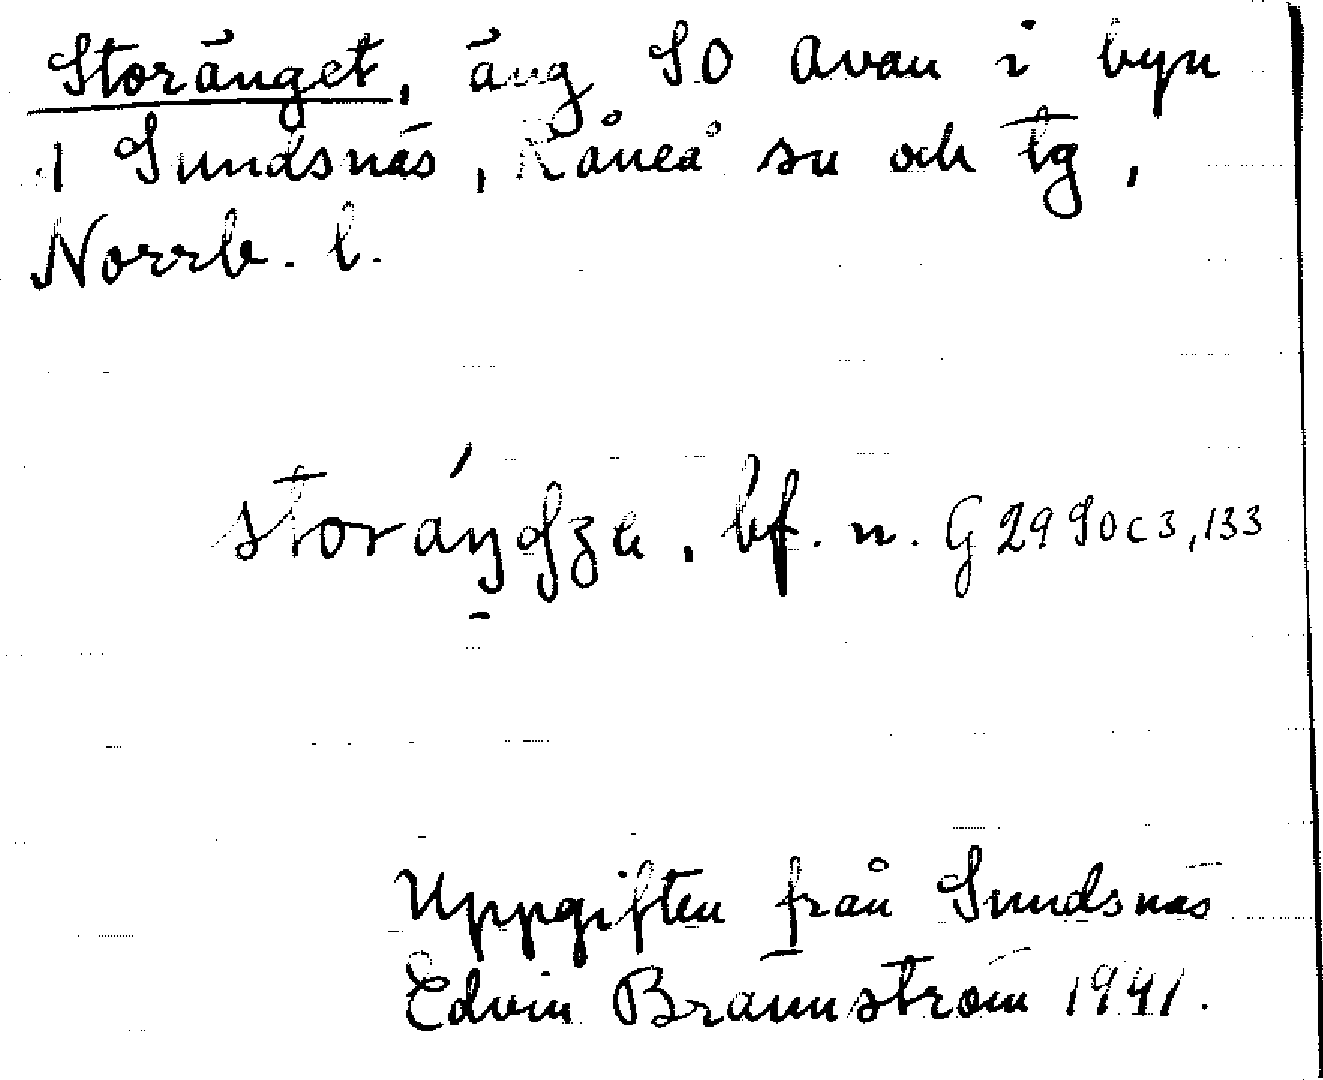 Storänget, äng SO Avan i byn
i Sundsnäs, Råneå sn och tg,
Norrb. l.
bf. n. G 29 90 c 3, 133
Uppgiften från Sundsnäs
Edvin Brännström 1941.